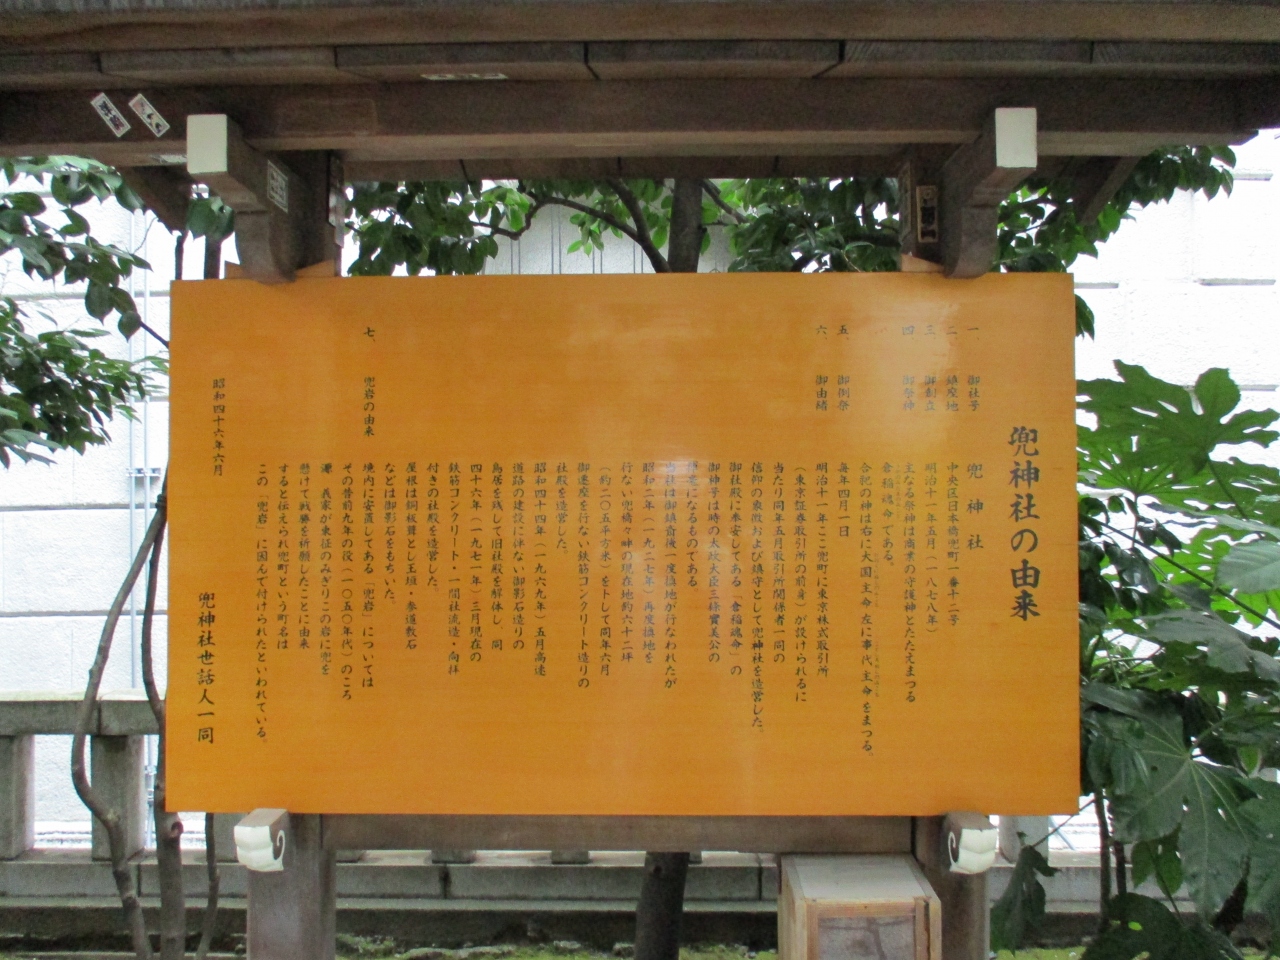 兜神社の由来
一、 御社号 兜神社
二、 鎮座地 中央区日本橋兜町一番十二号
三、 御創立 明治十一年五月(一八七八年)
四、 御祭神 主なる祭神は商業の守護神とたたえまつる
倉稲魂命である。
合祀の神は右に大国主命左に事代主命をまつる。
五、 御例祭 毎年四月一日
六、 御由緒 明治十一年ここ兜町に東京株式取引所
(東京証券取引所の前身)が設けられるに
当たり同年五月取引所関係者一同の
信仰の象徴および鎮守として兜神社を造営した。
御社殿に奉安してある「倉稲魂命」の
御神号は時の太政大臣三條實美公の
揮毫になるものである
当社は御鎮斎後一度換地が行なわれたが
昭和二年(一九二七年)再度換地を
行ない兜橋々畔の現在地約六十二坪
(約二〇五平方米)をトして同年六月
御遷座を行ない鉄筋コンクリート造りの
社殿を造営した。
昭和四十四年(一九六九年)五月高速
道路の建設に伴ない御影石造りの
鳥居を残して旧社殿を解体し、同
四十六年(一九七一年)三月現在の
鉄筋コンクリート・一間社流造・向拝
付きの社殿を造営した。
屋根は銅板葺とし玉垣・参道敷石
などは御影石をもちいた。
七、 兜岩の由来 境内に安置してある「兜岩」については
その昔前九年の役(一〇五〇年代)のころ
源 義家が東征のみぎりこの岩に兜を
懸けて戦勝を祈願したことに由来
すると伝えられ兜町という町名は
この「兜岩」に因んで付けられたといわれている。
昭和四十六年六月
兜神社世話人一同